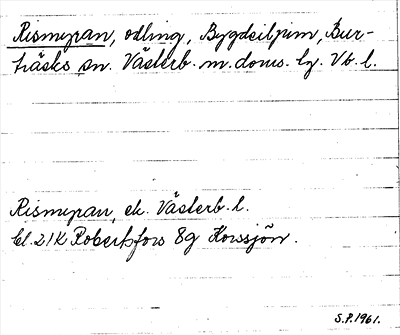 Rismyran, odling, Bygdsiljum, Bur-
träsks sn. Västerb. m. doms. lg. Vb. l.
Rismyran, ek. Västerb. l.
bl. 21K Robertsfors 8g Korssjön.
S.P. 1961.